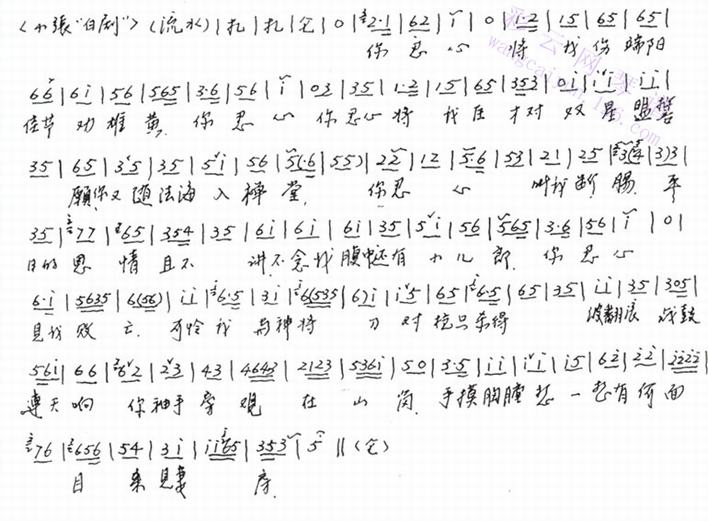 〈小張"白剧"〉(流水)|扎|扎|仓|0|2·1|62|i|0|1·2|15|65|65|
你忍心 将我伤 端阳
66|6i|56|565|3·6|56|i|03|35|1·2|15|65|353|0i|ii|ii|
佳节劝雄黄.你忍心你忍心将我 才对双星盟誓
35|65|3·5|35|5i|56|5(·6|55)|22|12|5·6|53|21|25|3(4|3)3|
願你又随法海入禅堂.你忍心 叫我断腸.平
35|77|65|354|35|6i|6i|6i|35|5i|56|565|3·6|56|i|0|
日的恩情且不讲不念我腹中还有小儿郎.你忍心
6·i|5635|6(56)|ii|6·5|3i|6(535|6)i|i·5|65|6·5|65|35|ii|35|305|
見我败亡.可怜我与神将刀对枪只杀得 波翻浪战鼓
56i|66|62|2·3|43|4643|2123|5361|50|3·5|ii|ii|i5|62|22|2222|
連天响你袖手旁观在山岗.手摸胸膛想一想有何面
76|656|54|3i|ii65|353|5||(仓)
目来見妻房.